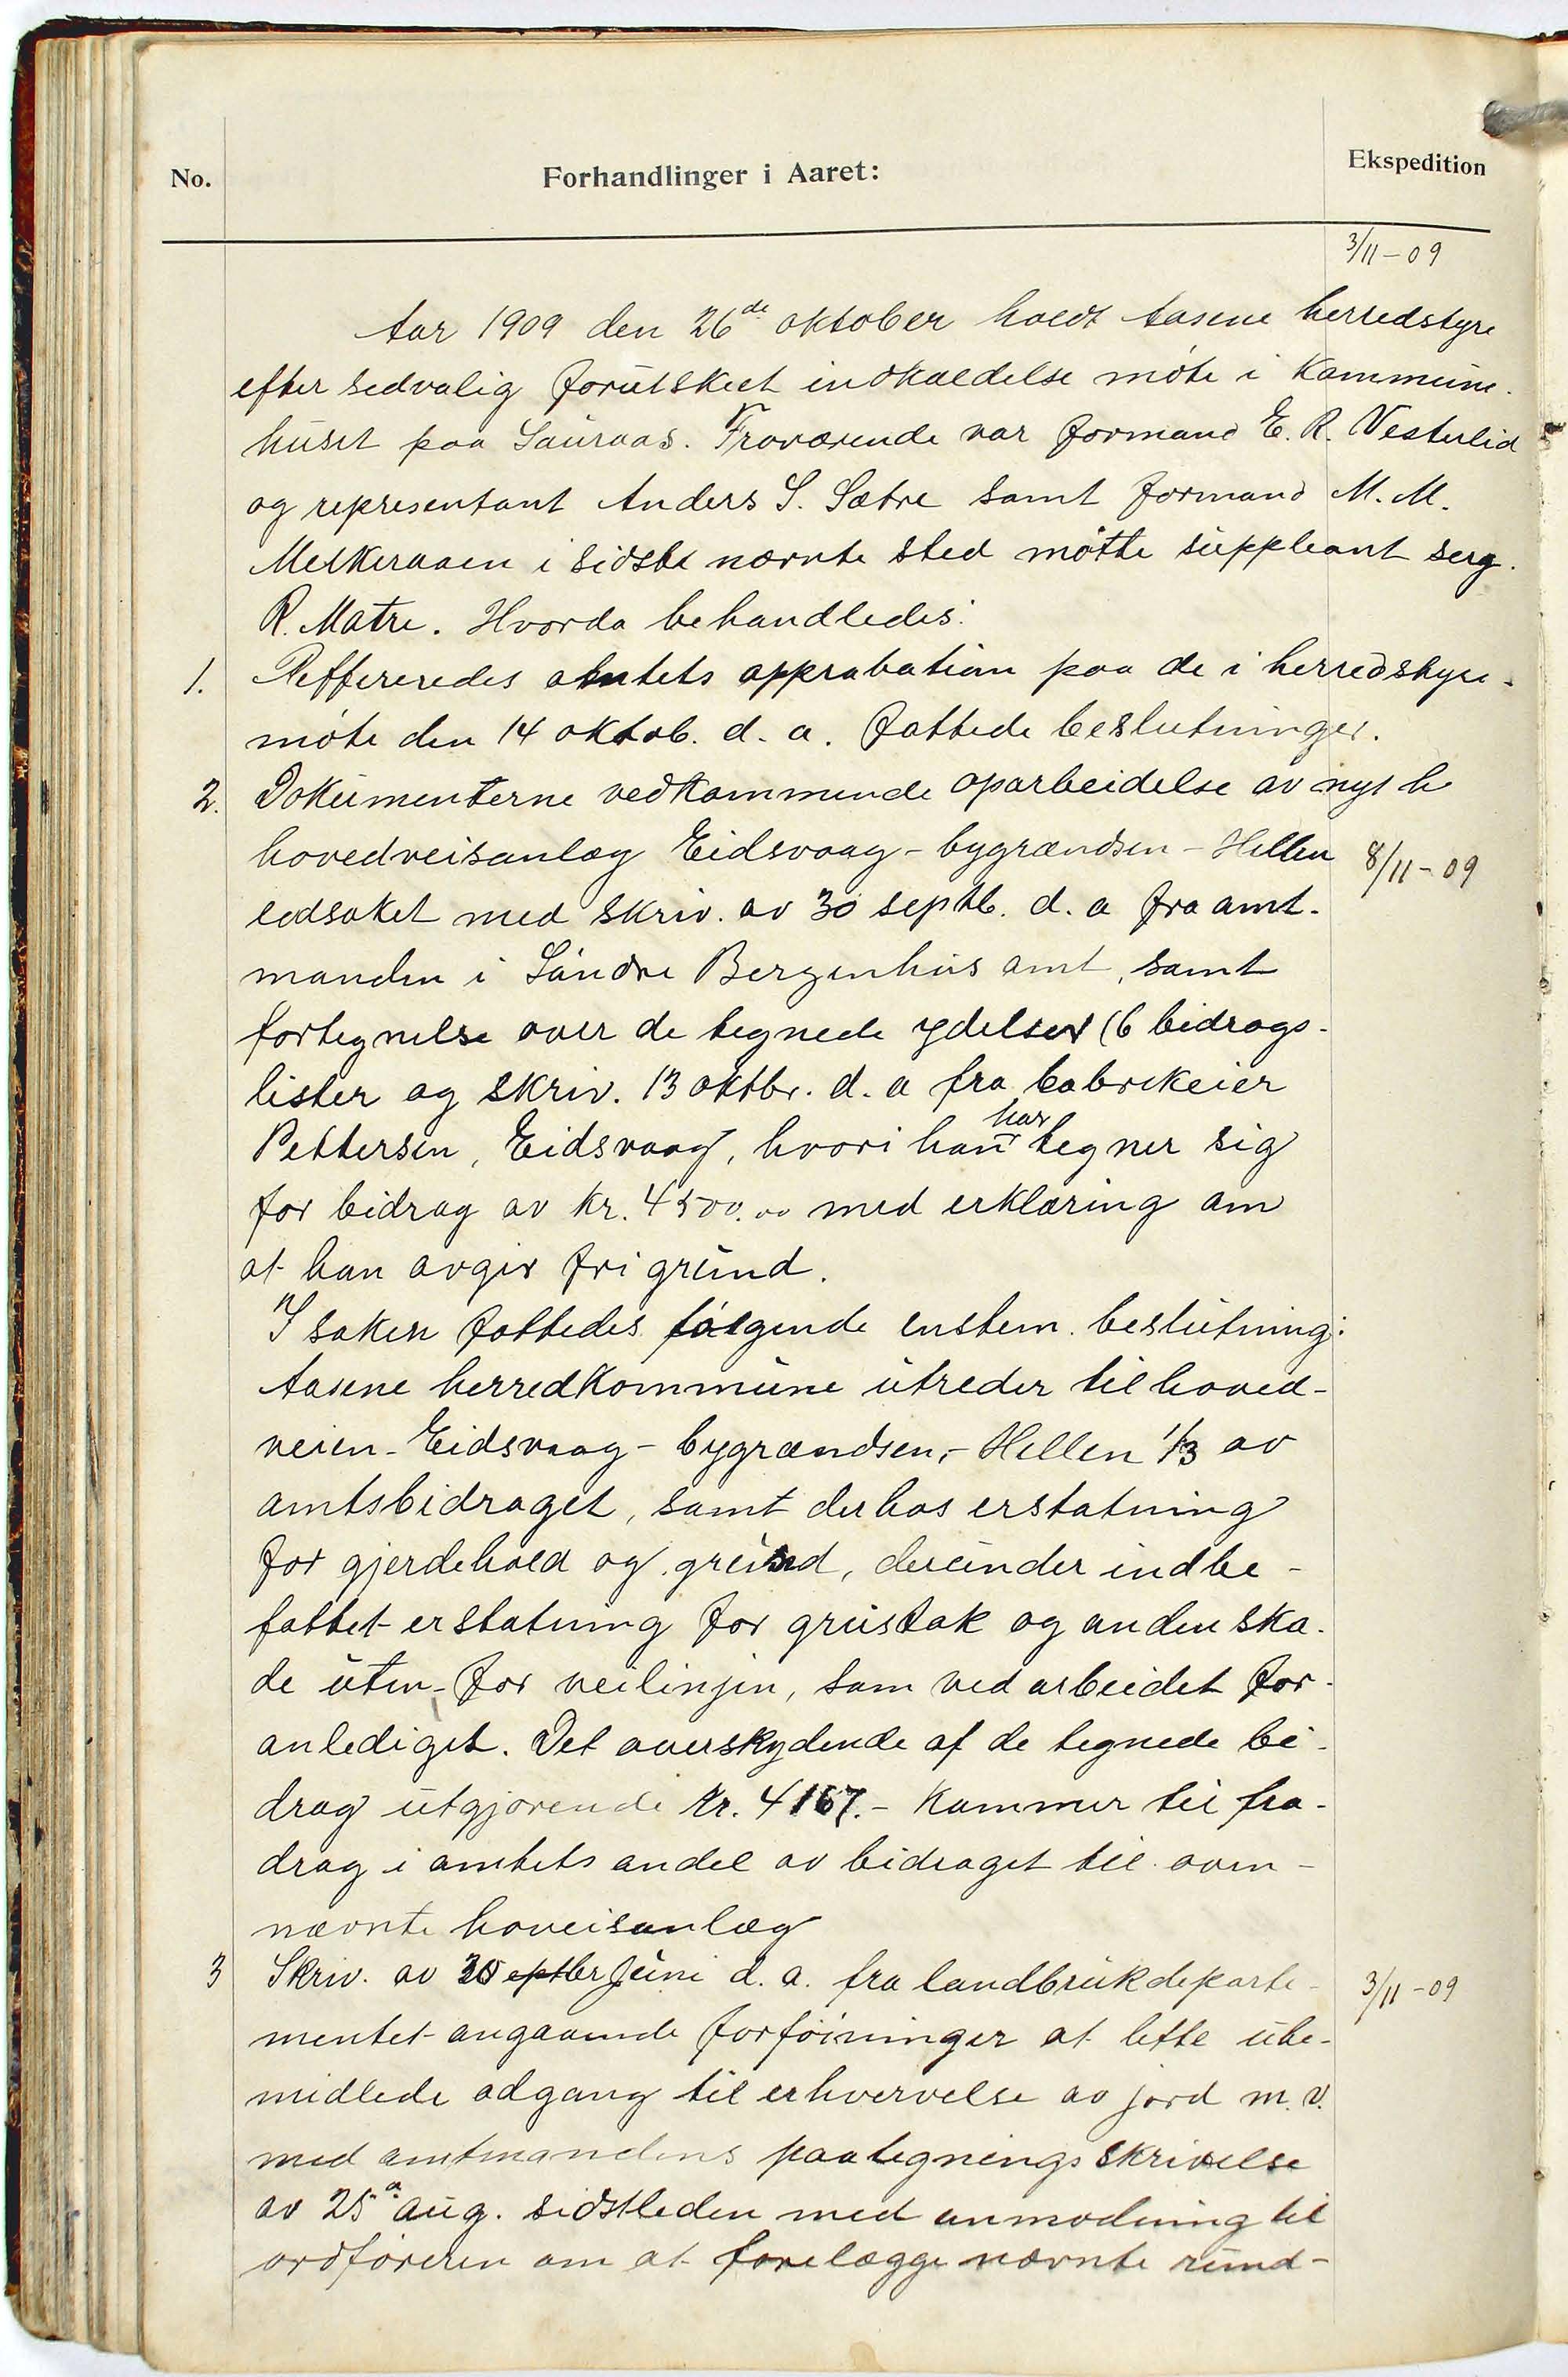 No.
Forhandlinger i Aaret:
Ekspedition
3/11-09
Aar 1909 den 26de oktober holdt Aasene herredstyre
efter sedvalig forutskeet indkaldelse möte i kommune-
huset paa Sauraas. Fraværende var formand E. R. Vesterlid
og representant Anders S. Sætre samt formand M. M.
Melkeraaen i sidste nævnte sted mötte suppleant serg.
R. Matre. Hvorda behandledes:
1. Reffereredes amtets approbation paa de i herredstyre-
möte den 14 oktob. d. a. fattede beslutninger.
2. Dokumenterne vedkommende oparbeidelse av nyt h
hovedveisanlæg Eidsvaag - bygrændsen - Hellen
8/11-09
ledsaket med skriv. av 30 septb. d. a fra amt-
manden i Söndre Bergenhus amt, samt
fortegnelse over de tegnede ydelser (6 bidrags-
lister og skriv. 13 oktbr. d. a fra fabrikeier
har
Pettersen, Eidsvaag, hvori han tegner sig
for bidrag av kr. 4500.00 med erklæring om
at han avgir fri grund.
I saken fattedes fölgende enstem. beslutning:
Aasene herredkommune utreder til hoved-
veien - Eidsvaag - bygrændsen,- Hellen 1/3 av
amtsbidraget, samt derhos erstatning
for gjerdehold og grund, derunder indbe-
fattet erstatning for grustak og anden ska-
de uten-for veilinjen, som ved arbeidet for-
anlediget. Det overskydende af de tegnede bi-
drag utgjörende kr. 4167.- kommer til fra-
drag i amtets andel av bidraget til oven-
nævnte hoveisanlæg
3 Skriv. av 30 septbr Juni d. a. fra landbrukdeparte-
3/11-09
mentet angaaende forföininger at lette ube-
midlede adgang til erhvervelse av jord m. v.
med amtmandens paategningsskrivelse
av 25 aug. sidstleden med anmodning til
ordföreren om at forelægge nævnte rund-